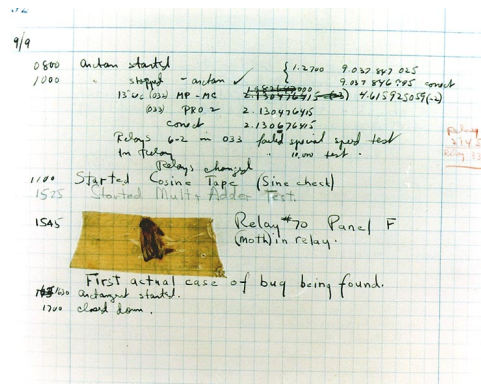 9/9
0800 arctan started
1000 " stopped - arctan ✓ { 1.2700 9.037 847 025
9.037 846 995 correct
13"uc (032) MP - MC 2.130476415 (-3) 4.615925059(-2)
(033) PRO 2 2.130476415
correct 2.130676415
Relays 6-2 in 033 failed special speed test
in Relay " 10,000 test.
Relays changed
1100 Started Cosine Tape (Sine check)
1525 Started Mult+Adder Test.
1545 Relay #70 Panel F
(moth) in relay.
First actual case of bug being found.
1630 arctangent started.
1700 closed down.
Relay